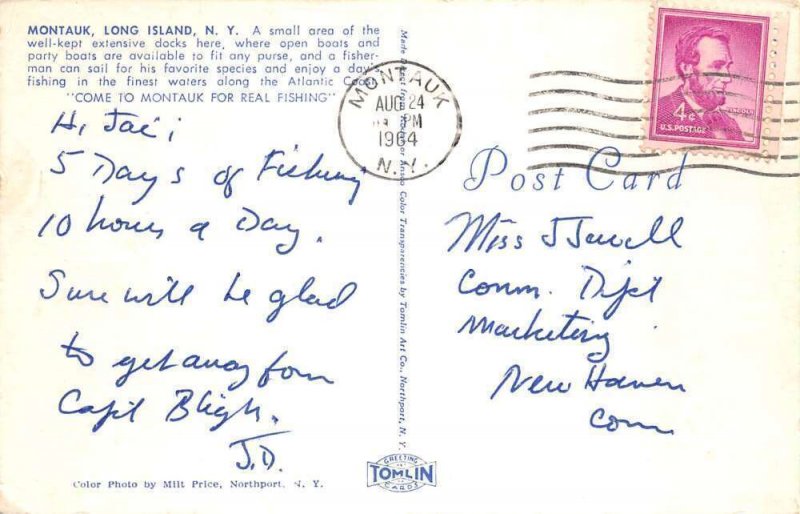 MONTAUK, LONG ISLAND, N. Y. A small area of the
well-kept extensive docks here, where open boats and
party boats are available to fit any purse, and a fisher-
man can sail for his favorite species and enjoy a day's
fishing in the finest waters along the Atlantic Coast.
"COME TO MONTAUK FOR REAL FISHING"
Hi
5 Days of Fishing
10 hours a Day.
Sure will be glad
to get away from
Capt Bligh.
J.D.
Color Photo by Milt Price, Northport, N. Y.
Made direct from Kodachrome or Ansco Color Transparencies by Tomlin Art Co., Northport, N. Y.
MONTAUK
AUG 24
PM
1964
N.Y.
4¢
LINCOLN
U.S. POSTAGE
Post Card
Miss J Jewell
Comm. Dept
Marketing
New Haven
Conn
GREETING
TOMLIN
CARDS